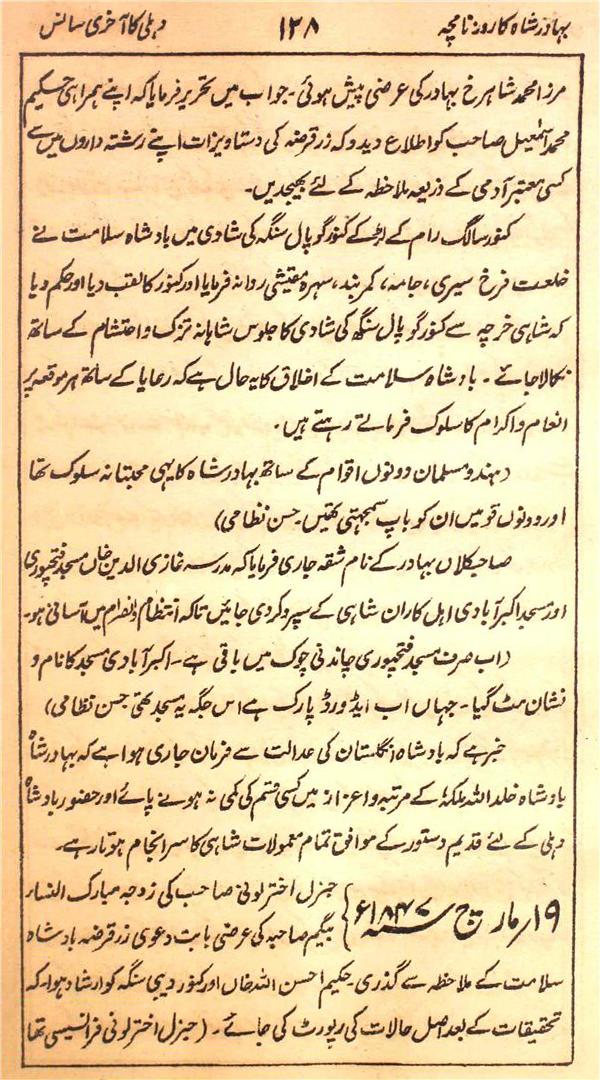 بہادر شاہ کا روزنامچہ ۱۲۸ دہلی کا آخری سانس
مرزا محمد شاہرخ بہادر کی عرضی پیش ہوئی۔ جواب میں تحریر فرمایا کہ اپنے ہمراہی حکیم
محمد اسمٰعیل صاحب کو اطلاع دیدو کہ زر قرضہ کی دستاویزات اپنے رشتہ داروں میں سے
کسی معتبر آدمی کے ذریعہ ملاحظہ کے لئے بھیجدیں۔
کنور سالگ رام کے لڑکے کنور گوپال سنگہ کی شادی میں بادشاہ سلامت نے
خلعت فرخ سیری، جامہ، کمربند، سہرہ مقیشی روانہ فرمایا اور کنور کا لقب دیا اور حکم دیا
کہ شاہی خرچہ سے کنور گوپال سنگھ کی شادی کا جلوس شاہانہ تزک و احتشام کے ساتھ
نکالا جائے۔ بادشاہ سلامت کے اخلاق کا یہ حال ہے کہ رعایا کے ساتھ ہر موقعہ پر
انعام و اکرام کا سلوک فرماتے رہتے ہیں۔
(ہندو مسلمان دونوں اقوام کے ساتھ بہادر شاہ کا یہی محبتانہ سلوک تھا
اور دونوں قومیں ان کو باپ سمجہتی تھیں۔ حسن نظامی)
صاحبکلاں بہادر کے نام شقہ جاری فرمایا کہ مدرسہ غازی الدین خاں مسجد فتحپوری
اور مسجد اکبرآبادی اہل کاران شاہی کے سپرد کردی جائیں تاکہ انتظام و انصرام میں آسانی ہو۔
(اب صرف مسجد فتحپوری چاندنی چوک میں باقی ہے۔ اکبرآبادی مسجد کا نام و
نشان مٹ گیا۔ جہاں اب ایڈورڈ پارک ہے اس جگہ یہ مسجد تھی۔ حسن نظامی)
خبر ہے کہ بادشاہ انگلستان کی عدالت سے فرمان جاری ہوا ہے کہ بہادر شاہ
بادشاہ خلد اللہ ملکہٗ کے مرتبہ و اعزاز میں کسی قسم کی کمی نہ ہونے پائے اور حضور بادشاہ
دہلی کے لئے قدیم دستور کے موافق تمام معمولات شاہی کا سرانجام ہوتا رہے۔
۱۹؍مارچ سنہ ۱۸۴۷ء } جنرل اختر لونی صاحب کی زوجہ مبارک النسار
بیگم صاحبہ کی عرضی بابت دعوی زر قرضہ بادشاہ
سلامت کے ملاحظہ سے گذری۔ حکیم احسن اللہ خاں اور کنور دیبی سنگہ کو ارشاد ہوا۔ کہ
تحقیقات کے بعد اصل حالات کی رپورٹ کی جائے۔ (جنرل اختر لونی فرانسیسی تھا